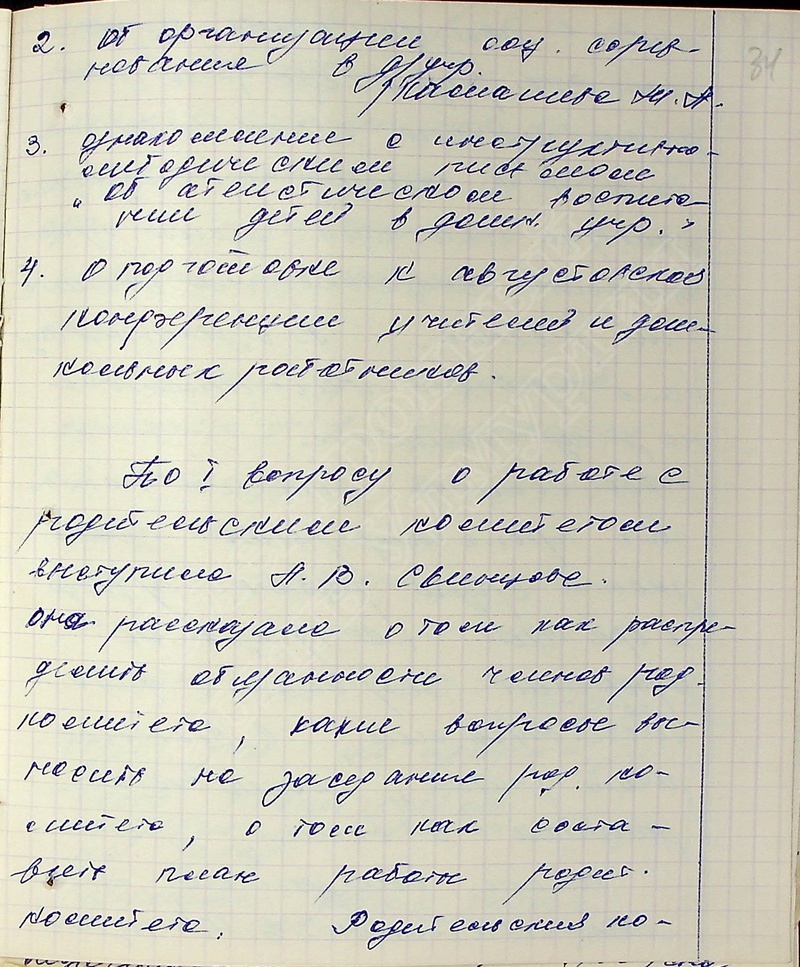 34
2. Об организации соц. сорев-
нования в д/учр.
/Камашева М. А.
3. ознакомление с инструктивно-
методическим письмом
„Об атеистическом воспита-
нии детей в дошк. учр."
4. О подготовке к августовской
конференции учителей и дош-
кольных работников.
По I вопросу о работе с
родительским комитетом
выступила А. В. Свинцова.
она рассказала о том как распре-
делить обязанности членов род.
комитета, какие вопросы вы-
носить на заседание род. ко-
митета, о том как соста-
вить план работы родит.
комитета. Родительский ко-